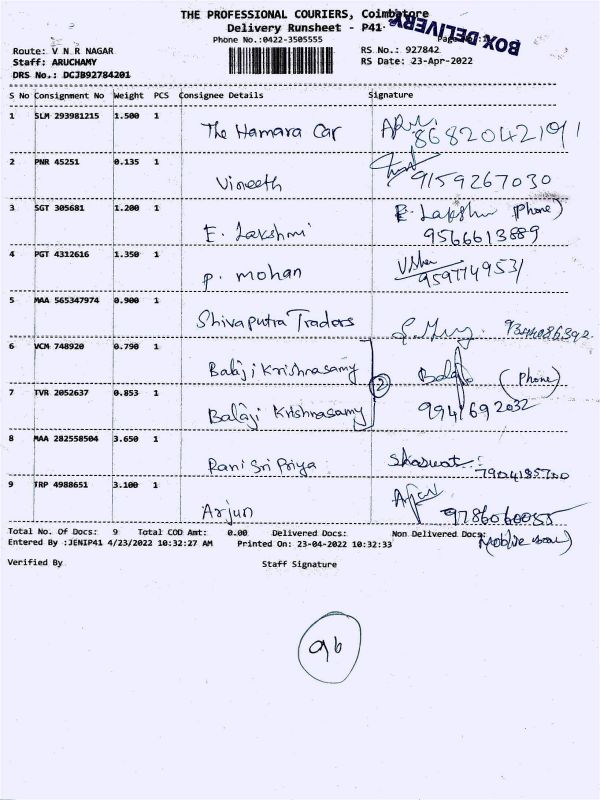 THE PROFESSIONAL COURIERS, Coimbatore
Delivery Runsheet - P41
BOX DELIVERY
Phone No.:0422-3505555
Route: V N R NAGAR RS No.: 927842
Staff: ARUCHAMY RS Date: 23-Apr-2022
DRS No.: DCJB92784201
S No Consignment No Weight PCS Consignee Details Signature
1 SLM 293981215 1.500 1
The Hamara Car 8682042191
2 PNR 45251 0.135 1
Vineeth 9159267030
3 SGT 305681 1.200 1
E. Lakshmi E. Lakshmi (Phone)
9566613889
4 PGT 4312616 1.350 1
P. mohan Usha
9597749531
5 MAA 565347974 0.900 1
Shivaputra Traders
6 VCM 748920 0.790 1
Balaji Krishnasamy Balaji (Phone)
2
7 TVR 2052637 0.853 1
Balaji Krishnasamy 9941692032
8 MAA 282558504 3.650 1
Rani Sri Priya Shaswat
7904185700
9 TRP 4988651 3.100 1
Arjun Arjun
9786060055
Total No. Of Docs: 9 Total COD Amt: 0.00 Delivered Docs: Non Delivered Docs:
Entered By :JENIP41 4/23/2022 10:32:27 AM Printed On: 23-04-2022 10:32:33
Verified By Staff Signature